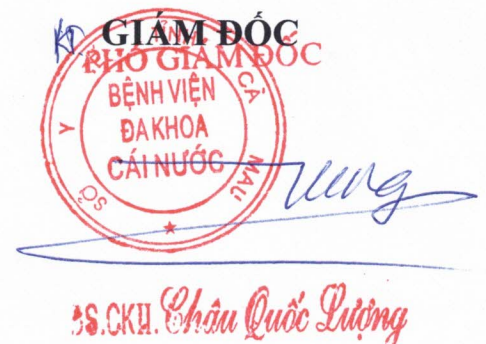 KT. GIÁM ĐỐC
PHÓ GIÁM ĐỐC
SỞ Y TẾ TỈNH CÀ MAU
BỆNH VIỆN
ĐA KHOA
CÁI NƯỚC
BS.CKII. Châu Quốc Lượng